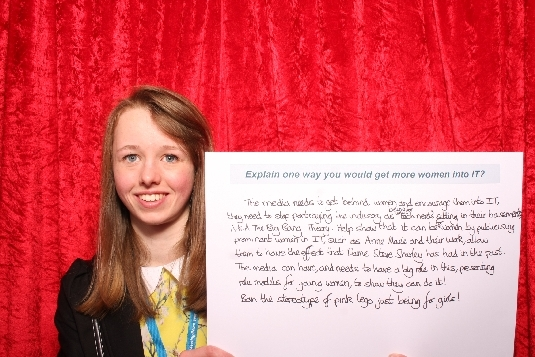 Explain one way you would get more women into IT?
The media needs to get behind women and encourage them into IT,
they need to stop portraying the industry as tech nerds sitting in their basements
A.K.A The Big Bang Theory. Help show that it can be women by publicising
prominent women in IT, such as Anne Marie and their work, allow
them to have the effect that Dame Steve Shirley has had in the past.
The media can have, and needs to have a big role in this, presenting
role models for young women, to show they can do it!
Ban the stereotype of pink lego just being for girls!